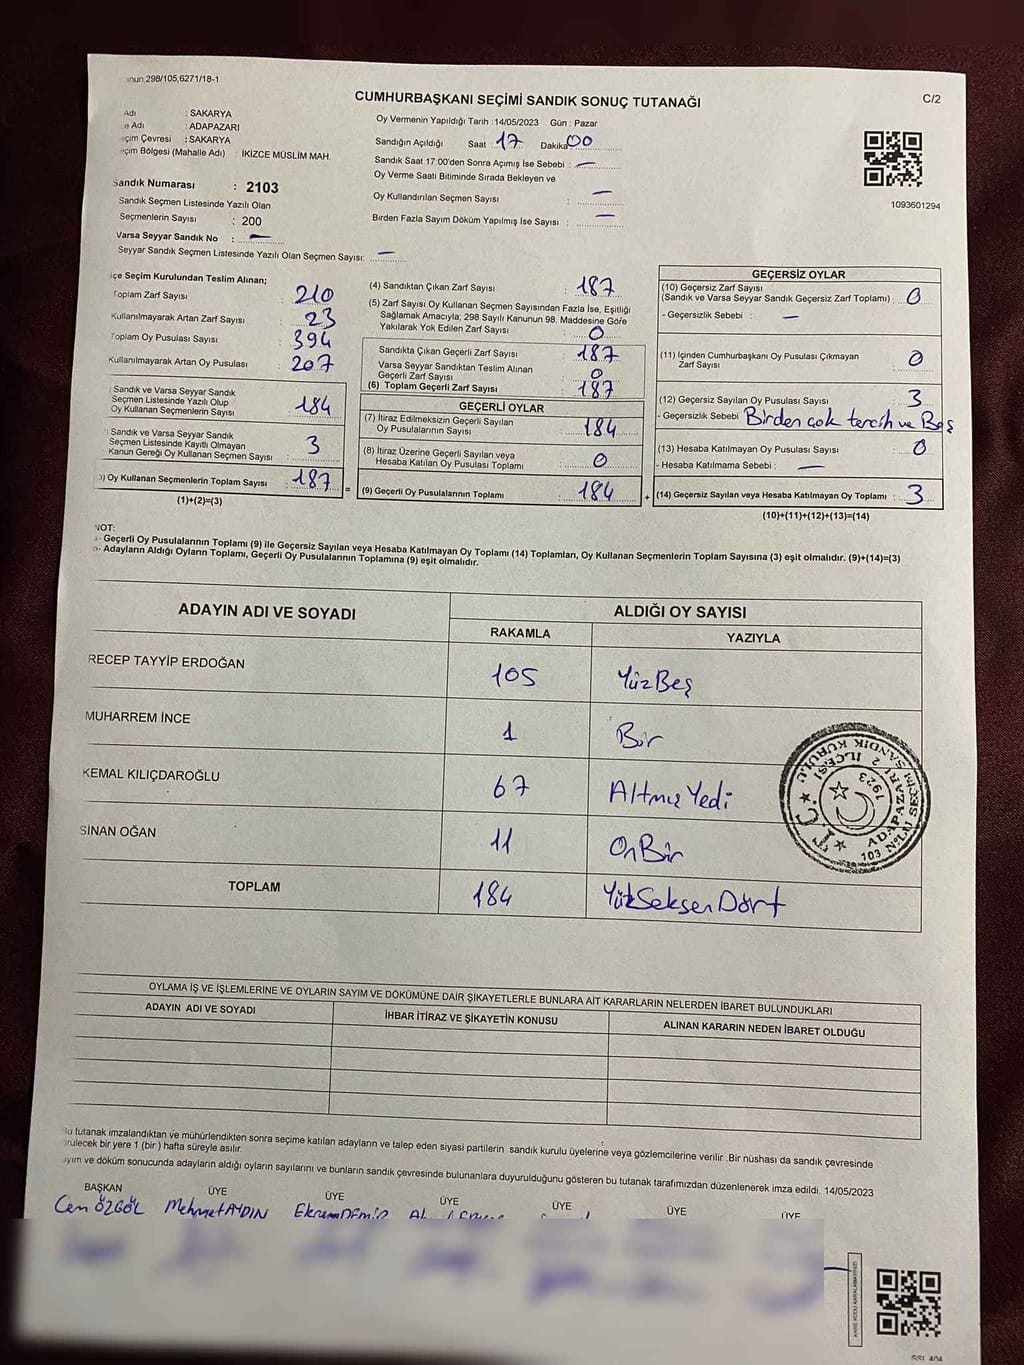 nun.298/105,6271/18-1
C/2
CUMHURBAŞKANI SEÇİMİ SANDIK SONUÇ TUTANAĞI
Adı : SAKARYA
e Adı : ADAPAZARI
çim Çevresi : SAKARYA
çim Bölgesi (Mahalle Adı) : İKİZCE MÜSLİM MAH.
Oy Vermenin Yapıldığı Tarih :14/05/2023 Gün : Pazar
Sandığın Açıldığı Saat : 17 Dakika 00
Sandık Saat 17:00'den Sonra Açımış İse Sebebi : —
Oy Verme Saati Bitiminde Sırada Bekleyen ve
Oy Kullandırılan Seçmen Sayısı : —
Birden Fazla Sayım Döküm Yapılmış İse Sayısı : —
1093601294
Sandık Numarası : 2103
Sandık Seçmen Listesinde Yazılı Olan
Seçmenlerin Sayısı : 200
Varsa Seyyar Sandık No : —
Seyyar Sandık Seçmen Listesinde Yazılı Olan Seçmen Sayısı: —
lçe Seçim Kurulundan Teslim Alınan;
Toplam Zarf Sayısı 210
Kullanılmayarak Artan Zarf Sayısı 23
Toplam Oy Pusulası Sayısı 394
Kullanılmayarak Artan Oy Pusulası 207
Sandık ve Varsa Seyyar Sandık
Seçmen Listesinde Yazılı Olup
Oy Kullanan Seçmenlerin Sayısı 184
Sandık ve Varsa Seyyar Sandık
Seçmen Listesinde Kayıtlı Olmayan
Kanun Gereği Oy Kullanan Seçmen Sayısı 3
) Oy Kullanan Seçmenlerin Toplam Sayısı 187 =
(1)+(2)=(3)
(4) Sandıktan Çıkan Zarf Sayısı : 187
(5) Zarf Sayısı Oy Kullanan Seçmen Sayısından Fazla İse, Eşitliği
Sağlamak Amacıyla; 298 Sayılı Kanunun 98. Maddesine Göre
Yakılarak Yok Edilen Zarf Sayısı : 0
Sandıkta Çıkan Geçerli Zarf Sayısı : 187
Varsa Seyyar Sandıktan Teslim Alınan
Geçerli Zarf Sayısı : 0
(6) Toplam Geçerli Zarf Sayısı : 187
GEÇERLİ OYLAR
(7) İtiraz Edilmeksizin Geçerli Sayılan
Oy Pusulalarının Sayısı : 184
(8) İtiraz Üzerine Geçerli Sayılan veya
Hesaba Katılan Oy Pusulası Toplamı : 0
(9) Geçerli Oy Pusulalarının Toplamı : 184 +
GEÇERSİZ OYLAR
(10) Geçersiz Zarf Sayısı
(Sandık ve Varsa Seyyar Sandık Geçersiz Zarf Toplamı) : 0
- Geçersizlik Sebebi : —
(11) İçinden Cumhurbaşkanı Oy Pusulası Çıkmayan
Zarf Sayısı : 0
(12) Geçersiz Sayılan Oy Pusulası Sayısı : 3
- Geçersizlik Sebebi Birden çok tercih ve Boş
(13) Hesaba Katılmayan Oy Pusulası Sayısı : 0
- Hesaba Katılmama Sebebi : —
(14) Geçersiz Sayılan veya Hesaba Katılmayan Oy Toplamı : 3
(10)+(11)+(12)+(13)=(14)
NOT:
- Geçerli Oy Pusulalarının Toplamı (9) ile Geçersiz Sayılan veya Hesaba Katılmayan Oy Toplamı (14) Toplamları, Oy Kullanan Seçmenlerin Toplam Sayısına (3) eşit olmalıdır. (9)+(14)=(3)
- Adayların Aldığı Oyların Toplamı, Geçerli Oy Pusulalarının Toplamına (9) eşit olmalıdır.
ADAYIN ADI VE SOYADI ALDIĞI OY SAYISI
RAKAMLA YAZIYLA
RECEP TAYYİP ERDOĞAN 105 YüzBeş
MUHARREM İNCE 1 Bir
KEMAL KILIÇDAROĞLU 67 Altmış Yedi
SİNAN OĞAN 11 OnBir
TOPLAM 184 YüzSeksenDört
T.C. ADAPAZARI 2 İLÇESİ
103 NOLU SEÇİM SANDIK KURULU
1923
OYLAMA İŞ VE İŞLEMLERİNE VE OYLARIN SAYIM VE DÖKÜMÜNE DAİR ŞİKAYETLERLE BUNLARA AİT KARARLARIN NELERDEN İBARET BULUNDUKLARI
ADAYIN ADI VE SOYADI İHBAR İTİRAZ VE ŞİKAYETİN KONUSU ALINAN KARARIN NEDEN İBARET OLDUĞU
u tutanak imzalandıktan ve mühürlendikten sonra seçime katılan adayların ve talep eden siyasi partilerin sandık kurulu üyelerine veya gözlemcilerine verilir .Bir nüshası da sandık çevresinde
rülecek bir yere 1 (bir ) hafta süreyle asılır.
ayım ve döküm sonucunda adayların aldığı oyların sayılarını ve bunların sandık çevresinde bulunanlara duyurulduğunu gösteren bu tutanak tarafımızdan düzenlenerek imza edildi. 14/05/2023
BAŞKAN ÜYE ÜYE ÜYE ÜYE ÜYE ÜYE
Cem ÖZGÖL Mehmet AYDIN Ekrem DEMİR